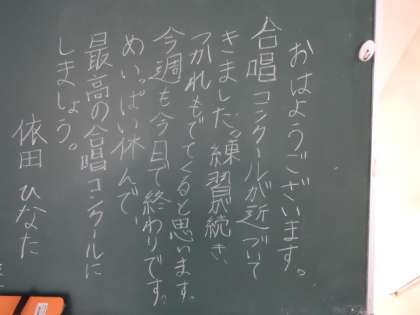 おはようございます。
合唱コンクールが近づいて
きました。練習が続き、
つかれもでてくると思います。
今週も今日で終わりです。
めいっぱい休んで、
最高の合唱コンクールに
しましょう。
依田ひなた